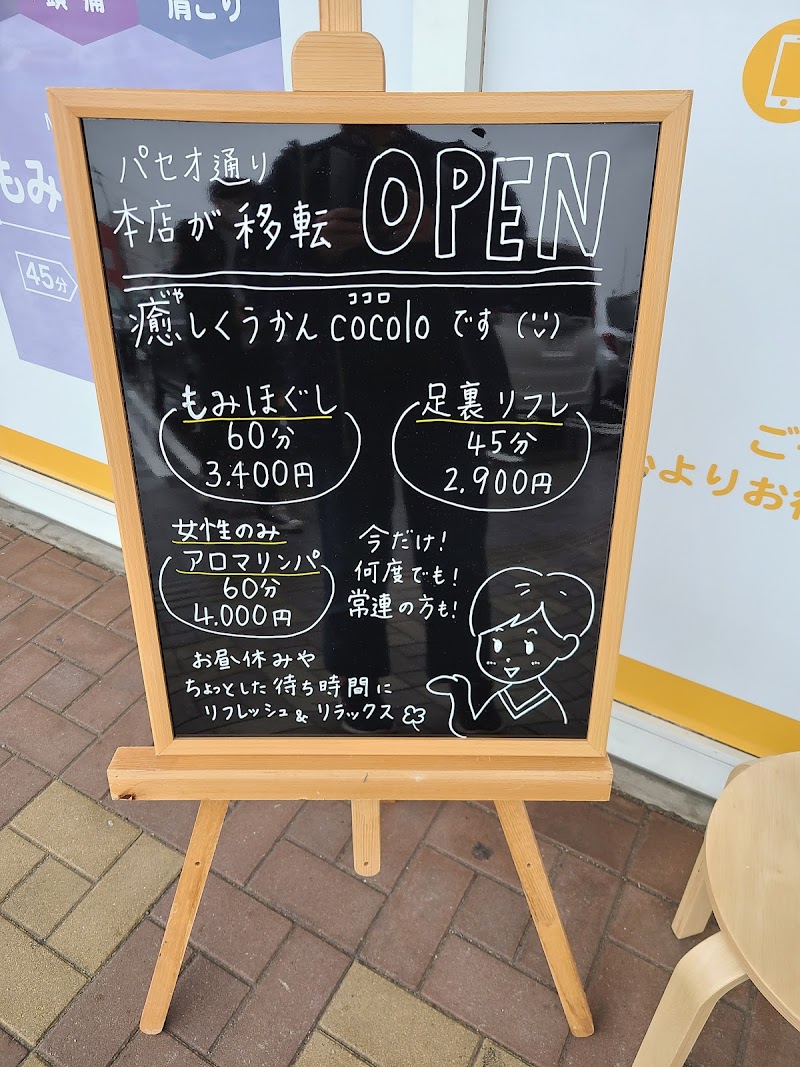 頭痛
肩こり
もみ
45分
パセオ通り
本店が移転
OPEN
いや
ココロ
癒しくうかん cocolo です (¨)
もみほぐし
60分
3.400円
足裏リフレ
45分
2.900円
女性のみ
アロマリンパ
60分
4.000円
今だけ!
何度でも!
常連の方も!
お昼休みや
ちょっとした待ち時間に
リフレッシュ&リラックス
よりお